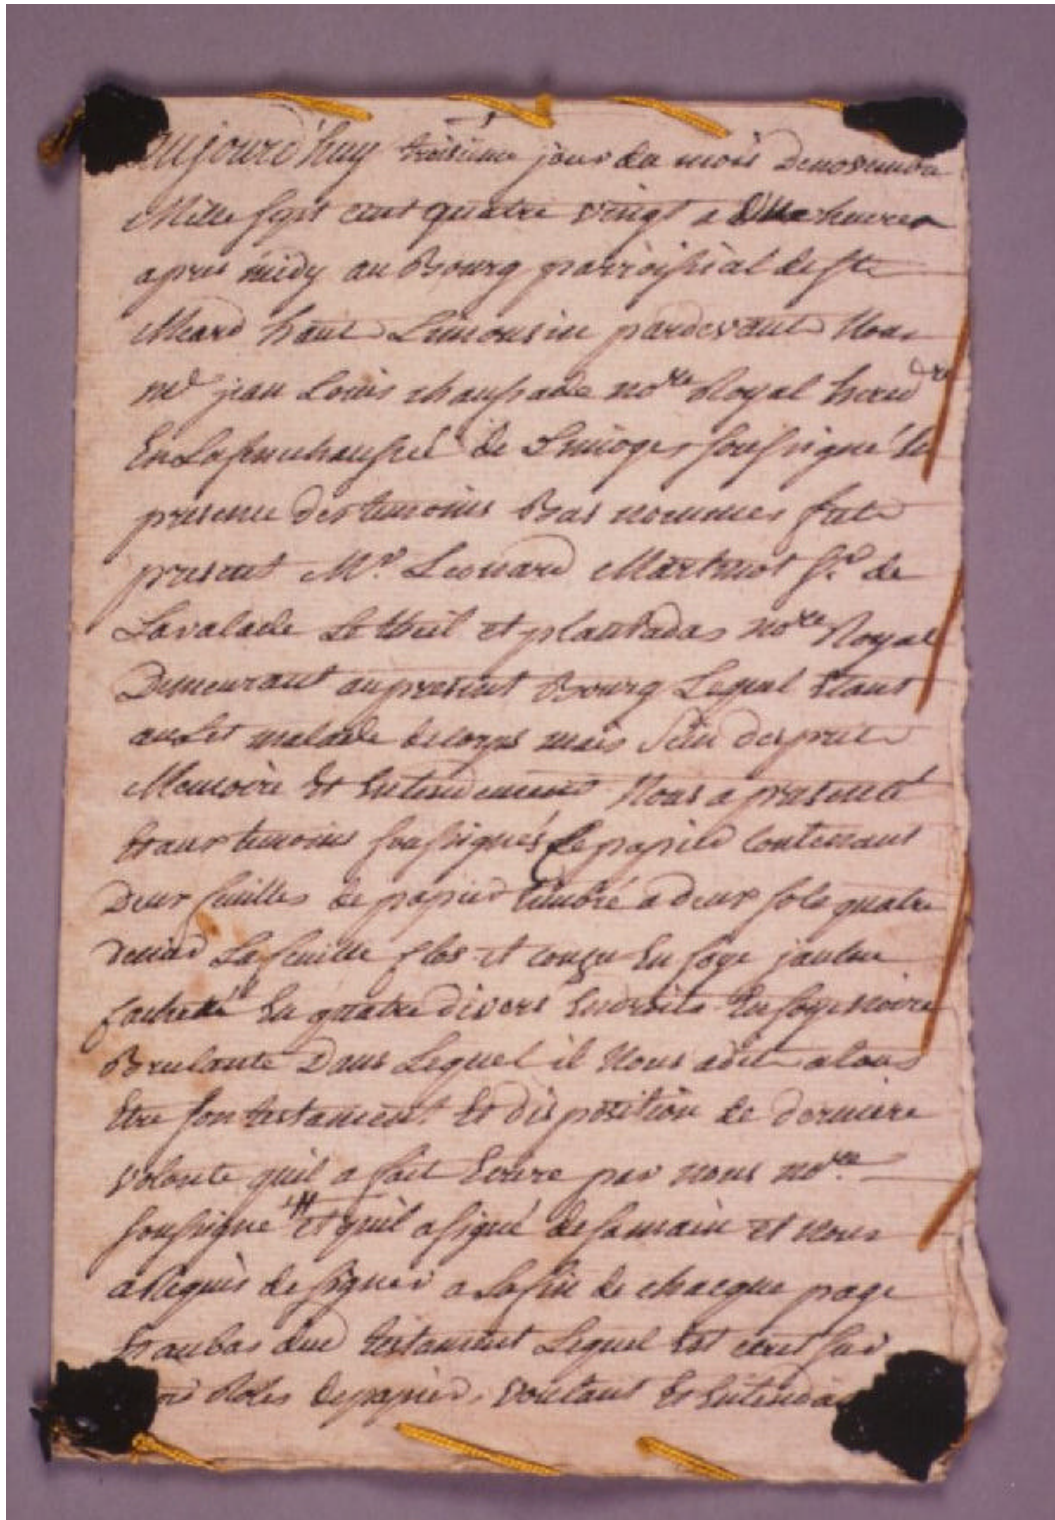 aujourd'huy troisieme jour du mois de novembre
Mille sept cent quatre vingt a heures
apres midy au Bourg parroissial de St
Meard haut Limousin pardevant Nous
me jean Louis chaussade nore Royal hered
En La senechaussée de Limoges soussigné Et
presence des temoins Bas nommes fut
present Mr Leonard Martinot Sr de
Lavalade Le theil et plantadas nore Royal
Demeurant au present Bourg Lequel Etant
au Lit malade de corps mais sein desprit
Memoire Et Entendement Nous a presenté
Et aux temoins soussignés Le papier contenant
Deux feuilles de papier timbré a deux sols quatre
denier La feuille clos et cousu En soye jaulne
cacheté En quatre divers Endroits En soye noire
Brulante Dans Lequel il Nous a dit
Etre son testament Et disposition de derniere
volonte quil a fait Ecrire par nous nore
soussigne et quil a signé de sa main et nous
a Requis de signer a La fin de chacque page
Et au bas dud testament Lequel Est ecrit sur
Roles de papier, voulant Et Entendant